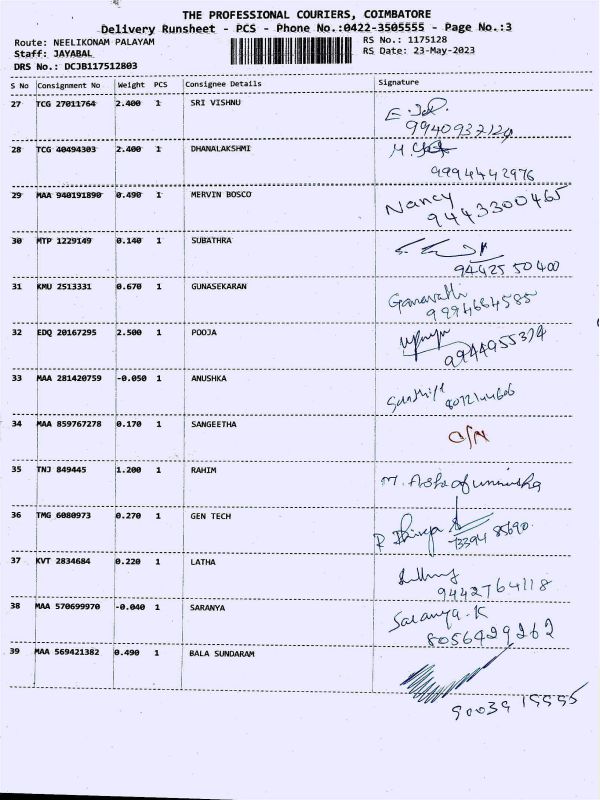 THE PROFESSIONAL COURIERS, COIMBATORE
Delivery Runsheet - PCS - Phone No.:0422-3505555 - Page No.:3
Route: NEELIKONAM PALAYAM RS No.: 1175128
Staff: JAYABAL RS Date: 23-May-2023
DRS No.: DCJB117512803
S No Consignment No Weight PCS Consignee Details Signature
27 TCG 27011764 2.400 1 SRI VISHNU
28 TCG 40494303 2.400 1 DHANALAKSHMI
9994442976
29 MAA 940191890 0.490 1 MERVIN BOSCO Nancy
9443300465
30 MTP 1229149 0.140 1 SUBATHRA
9442550400
31 KMU 2513331 0.670 1 GUNASEKARAN
9994684585
32 EDQ 20167295 2.500 1 POOJA
9944955374
33 MAA 281420759 -0.050 1 ANUSHKA
34 MAA 859767278 0.170 1 SANGEETHA
35 TNJ 849445 1.200 1 RAHIM
36 TMG 6080973 0.270 1 GEN TECH
37 KVT 2834684 0.220 1 LATHA
9442764118
38 MAA 570699970 -0.040 1 SARANYA Saranya.K
8056429262
39 MAA 569421382 0.490 1 BALA SUNDARAM
9003915555